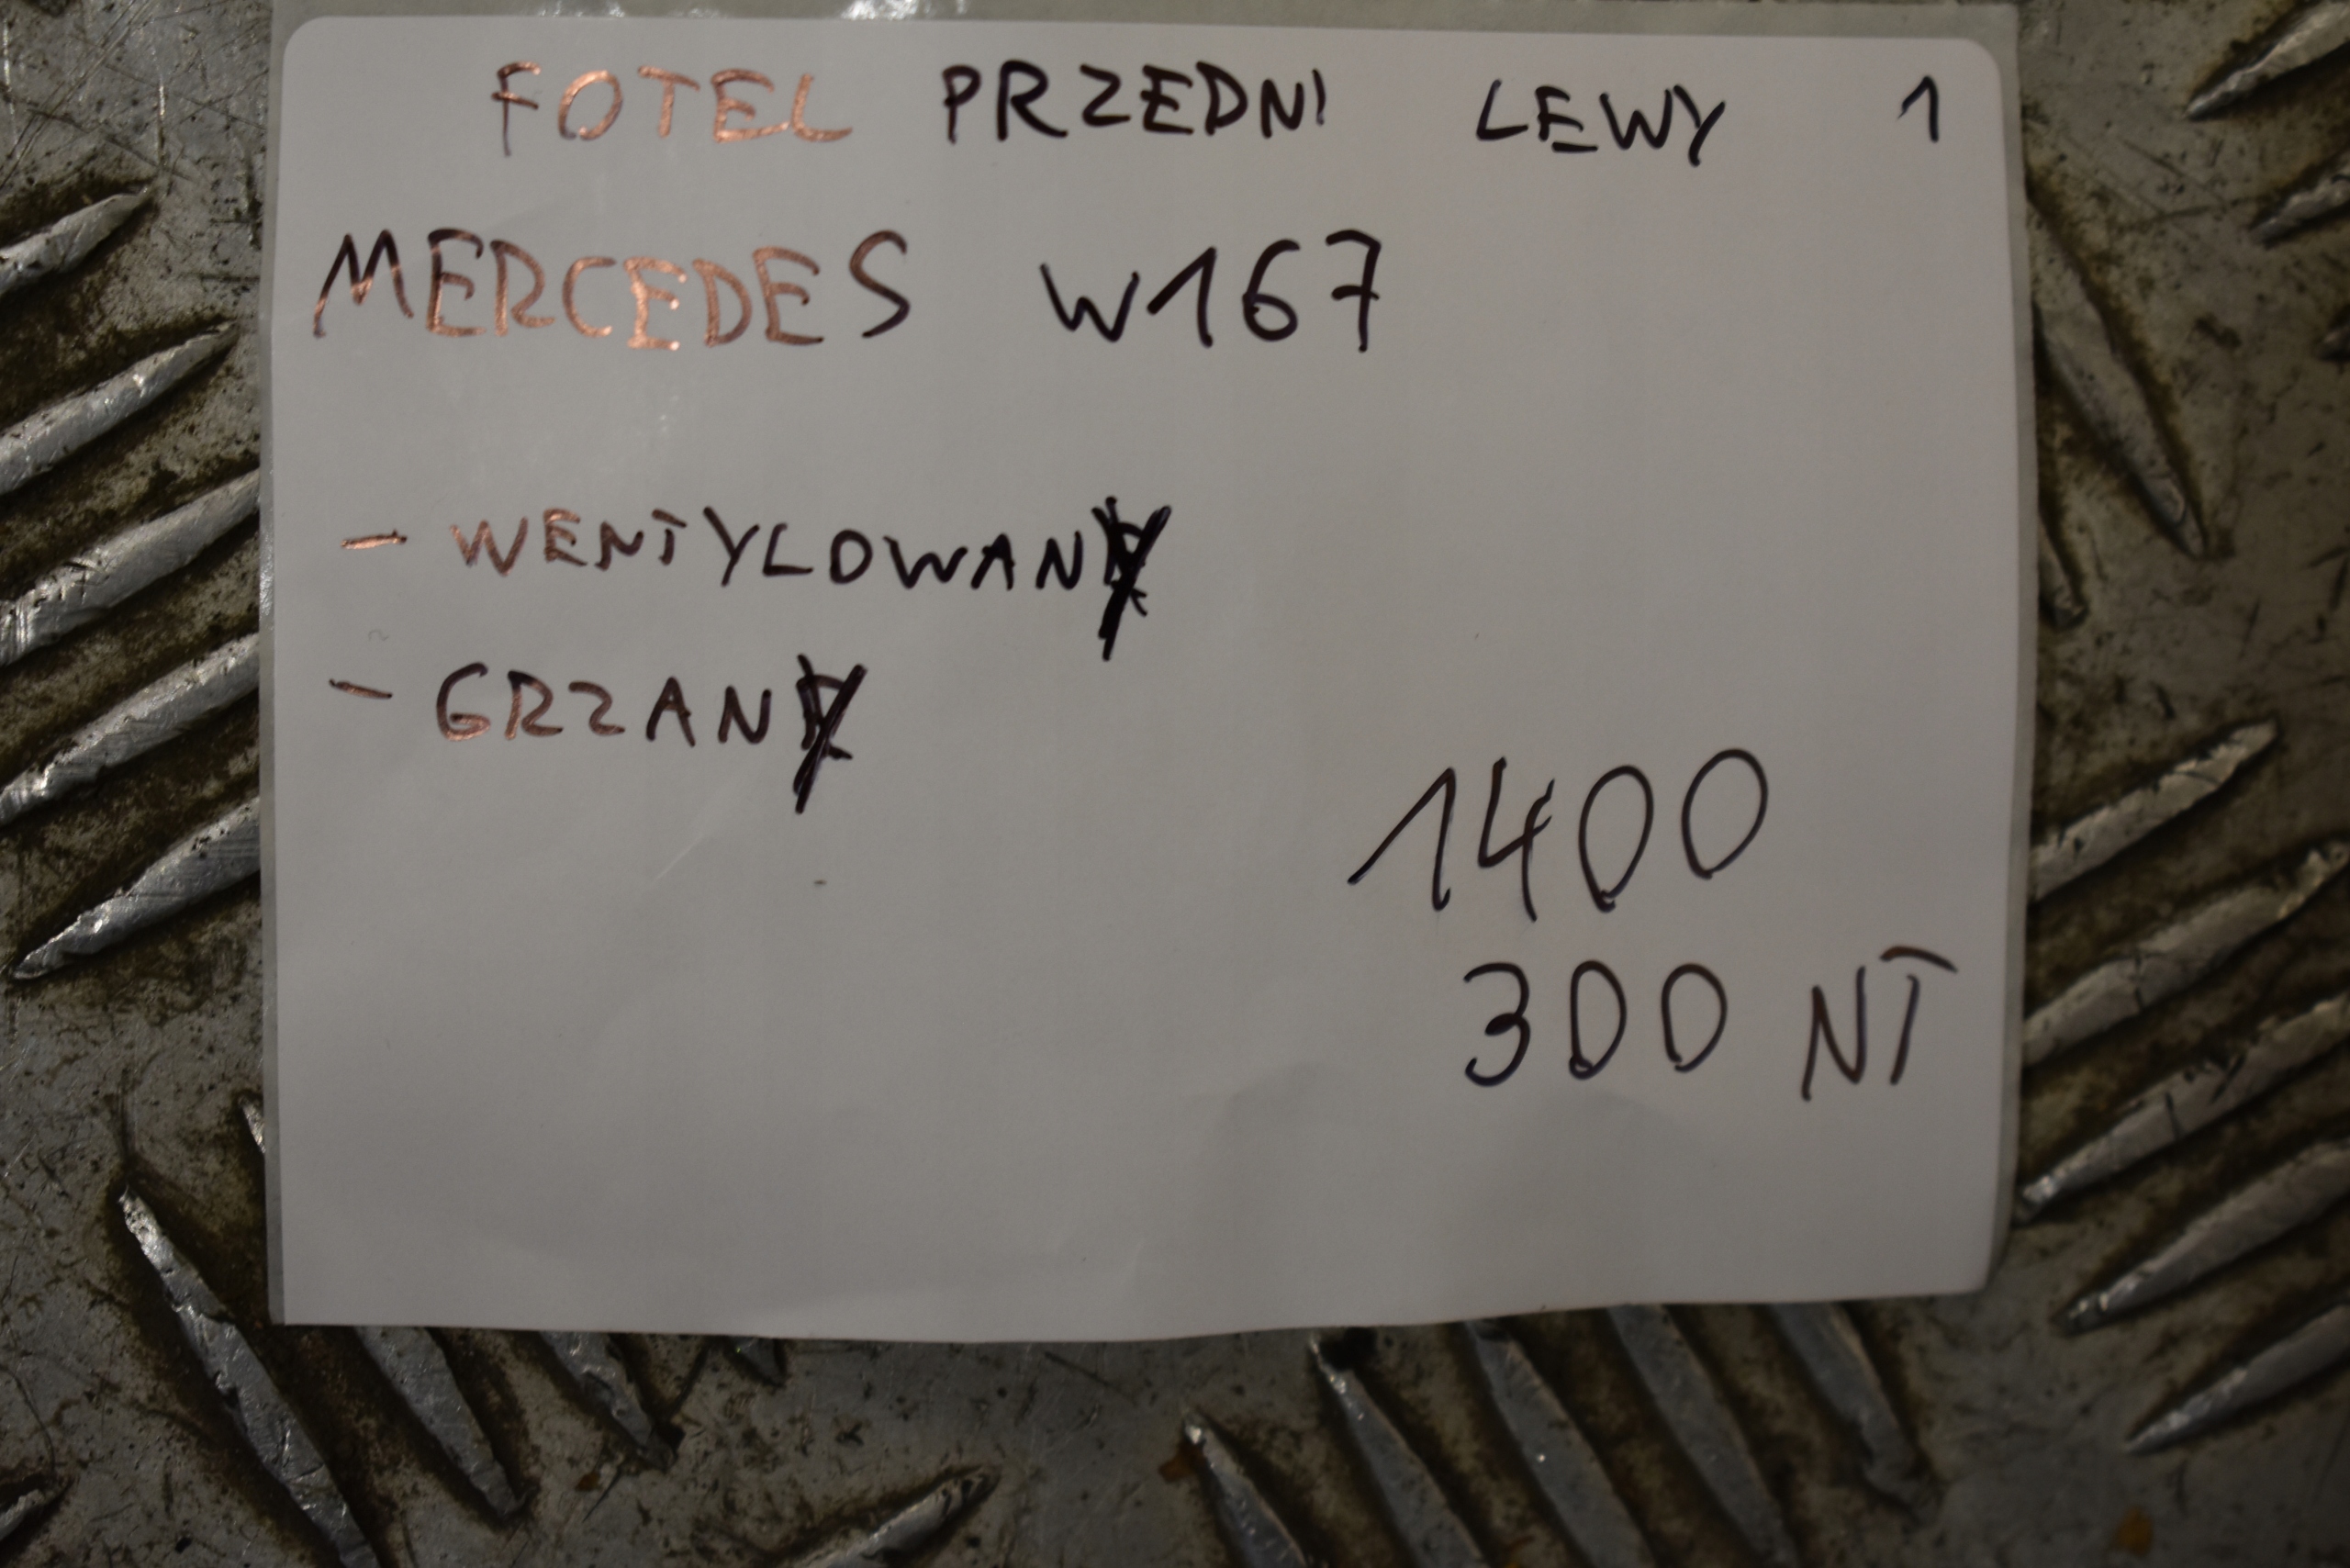 FOTEL PRZEDNI LEWY 1
MERCEDES W167
- WENTYLOWANY
- GRZANY
1400
300 NT